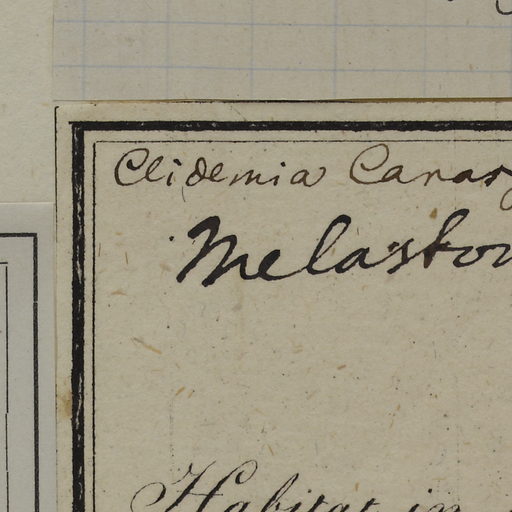 Clidemia
Melastom
Habitat in